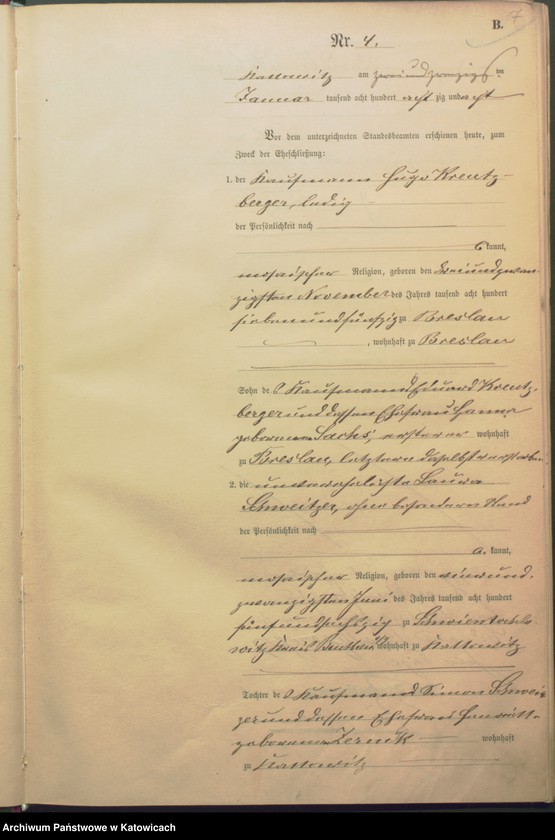 B. 7
Nr. 4.
Kattowitz am zweiundzwanzigsten
Januar tausend acht hundert acht zig und acht
Vor dem unterzeichneten Standesbeamten erschienen heute, zum
Zweck der Eheschließung:
1. der Kaufmann Hugo Kreutz-
berger, ledig
der Persönlichkeit nach
kannt,
mosaischer Religion, geboren den dreiundzwan-
zigsten November des Jahres tausend acht hundert
siebenundfünfzig zu Breslau
, wohnhaft zu Breslau
Sohn des Kaufmanns Eduard Kreutz-
berger und dessen Ehefrau Hanna
geborenen Sachs, ersterer wohnhaft
zu Breslau, letztere daselbst verstorben
2. die unverehelichte Laura
Schweitzer, ohne besonderen Stand
der Persönlichkeit nach
kannt,
mosaischer Religion, geboren den einund-
zwanzigsten Juni des Jahres tausend acht hundert
fünfundsechszig zu Schwientochlo-
witz Kreis Beuthen wohnhaft zu Kattowitz
Tochter des Kaufmanns Simon Schwei-
zer und dessen Ehefrau Henriette
geborenen Zernik wohnhaft
zu Kattowitz
Archiwum Państwowe w Katowicach